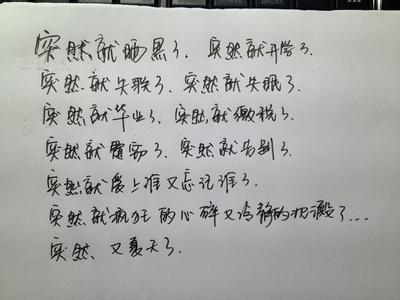 突然就晒黑了、突然就开学了、
突然就失联了、突然就失眠了、
突然就毕业了、突然就缴税了、
突然就离家了、突然就告别了、
突然就爱上谁又忘记谁了、
突然就疯狂的心碎又冷静的沉澱了...
突然、又夏天了、